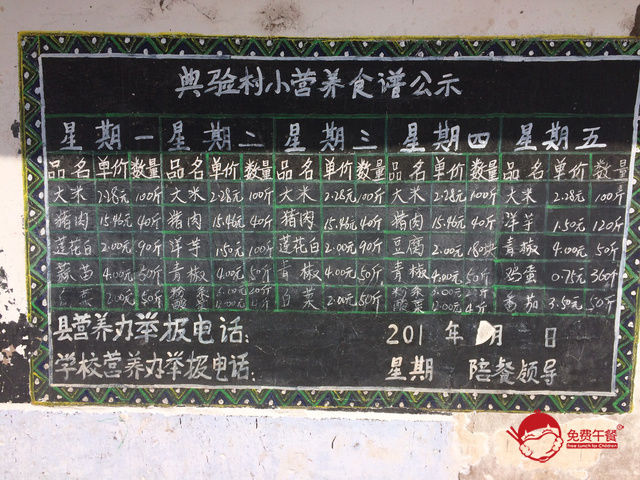 典验村小营养食谱公示
星期一 星期二 星期三 星期四 星期五
品名 单价 数量 品名 单价 数量 品名 单价 数量 品名 单价 数量 品名 单价 数量
大米 2.28元 100斤 大米 2.28元 100斤 大米 2.28元 100斤 大米 2.28元 100斤 大米 2.28元 100斤
猪肉 15.46元 40斤 猪肉 15.46元 40斤 猪肉 15.46元 40斤 猪肉 15.46元 40斤 洋芋 1.50元 120斤
莲花白 2.00元 90斤 洋芋 1.50元 100斤 莲花白 2.00元 90斤 豆腐 2.00元 180块 青椒 4.00元 50斤
4.00元 50斤 青椒 4.00元 50斤 青椒 4.00元 50斤 青椒 4.00元 50斤 鸡蛋 0.75元 360个
白菜 2.00元 50斤 粉条 酸菜 白菜 2.00元 50斤 粉条 酸菜 2.00元 4斤 番茄 3.50元 50斤
县营养办举报电话: 201 年 月 日
学校营养办举报电话: 星期 陪餐领导
免费午餐
Free Lunch for Children